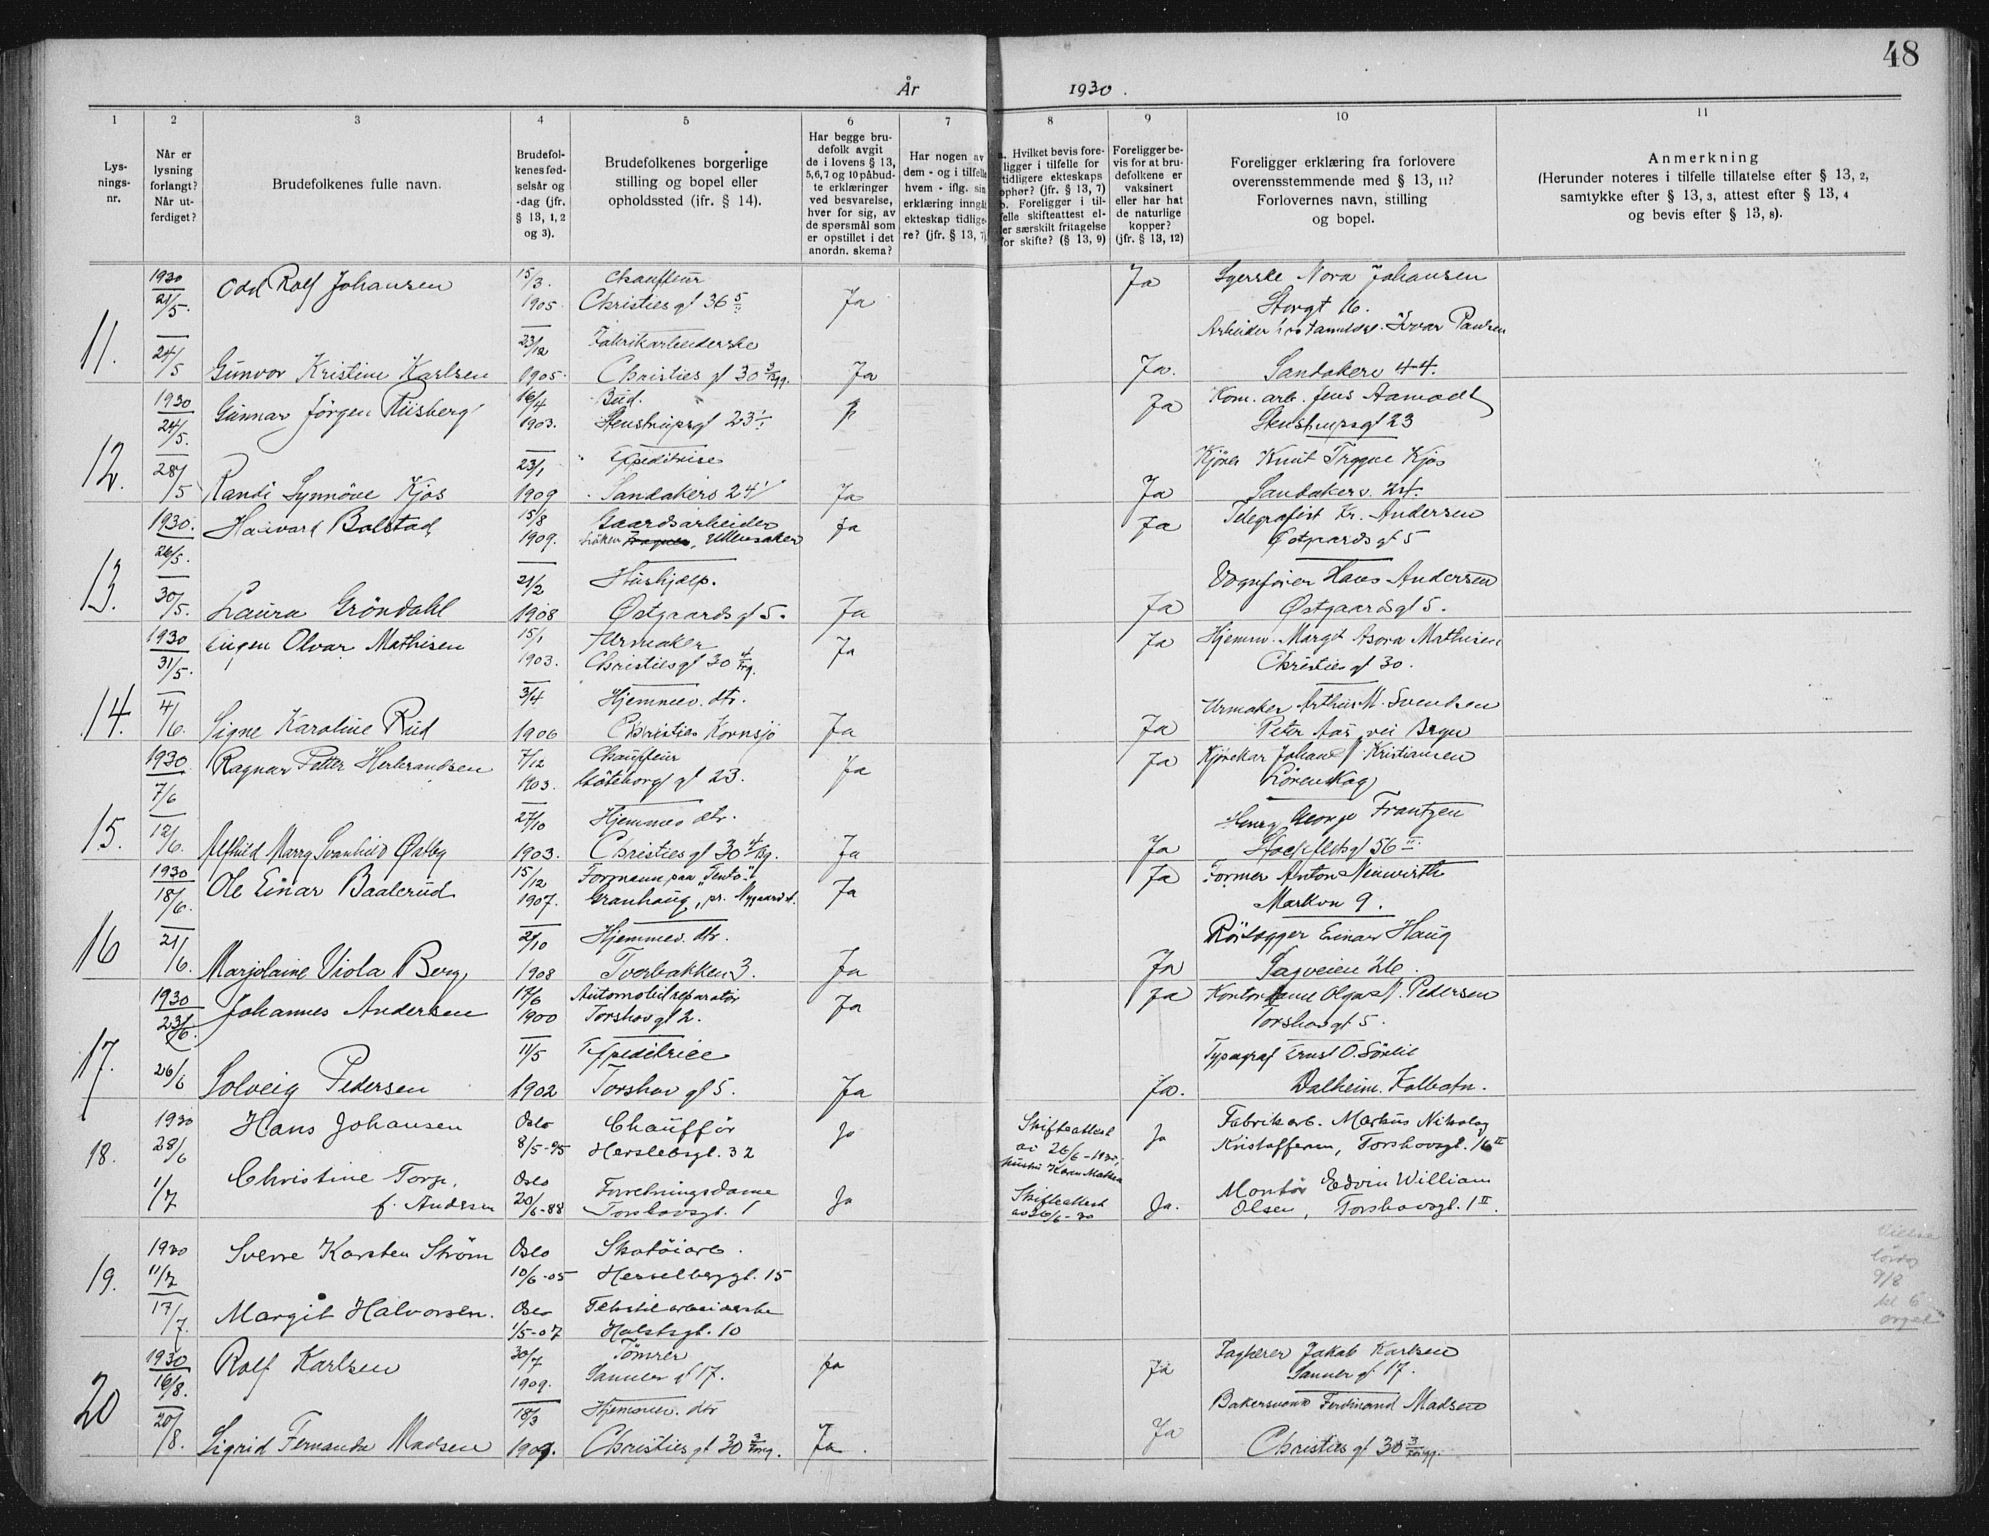 48
År 1930.
1 2 3 4 5 6 7 8 9 10 11
Lys-
nings-
nr.
Når er
lysning
forlangt?
Når ut-
ferdiget?
Brudefolkenes fulle navn.
Brudefol-
kenes fød-
selsår og
-dag (jfr.
§ 13, 1, 2
og 3).
Brudefolkenes borgerlige
stilling og bopel eller
opholdssted (jfr. § 14).
Har begge bru-
defolk avgit
de i lovens § 13,
5,6,7 og 10 påbud-
te erklæringer
ved besvarelse,
hver for sig, av
de spørsmål som
er opstillet i det
anordn. skema?
Har nogen av
dem - og i tilfelle
hvem - iflg. sin
erklæring inngåt
ekteskap tidlige-
re? (jfr. § 13, 7)
a. Hvilket bevis fore-
ligger i tilfelle for
tidligere ekteskaps
ophør? (jfr. § 13, 7)
b. Foreligger i til-
felle skifteattest el-
ler særskilt fritagelse
for skifte? (§ 13, 9)
Foreligger be-
vis for at bru-
defolkene er
vaksinert
eller har hat
de naturlige
kopper?
(jfr. § 13, 12)
Foreligger erklæring fra forlovere
overensstemmende med § 13, 11?
Forlovernes navn, stilling
og bopel.
Anmerkning
(Herunder noteres i tilfelle tillatelse efter § 13, 2,
samtykke efter § 13, 3, attest efter § 13, 4
og bevis efter § 13, 8).
11. 1930 21/5 Odd Rolf Johansen 15/3 1905 Chauffeur Ja Ja Nora Johansen
Christies gt 36 Storgt 16.
24/5 Gunvor Kristine Karlsen 23/12 1905 Fabrikarbeiderske Ja Ja. Arbeider Ivar Paulsen
Christies gt 30 Sandakerv 44.
12. 1930 24/5 Gunnar Jörgen Riisberg 16/4 1903. Bud. Ja Kom. arb. Jens Aamodt
Stenstrupsgt 23 Stenstrupsgt 23
28/5 Randi Synnöve Kjos 23/1 1909 Expeditrise Ja Ja Kjörer Knut Trygve Kjos
Sandakerv 24 Sandakerv. 24.
13. 1930. 26/5. Haavard Bolstad 15/8 1909. Gaardsarbeider Ja Ja Telegrafist Kr. Andersen
Ullensaker Østgaards gt 5
30/5. Laura Gröndahl 21/2 1908 Hushjælp. Ja Ja Vognfører Hans Andersen
Østgaards gt 5. Østgaardsgt 5.
14. 1930 31/5. Eugen Olvar Mathisen 15/1 1903. Urmaker Ja Ja Hjemmv. Margit Asora Mathisen
Christies gt 30 Christies gt 30.
4/6. Signe Karoline Rud 3/4 1906 Hjemmev. dtr. Ja Ja Urmaker Arthur M. Svendsen
Kornsjö Peter Aas vei Bryn
15. 1930 7/6 Ragnar Petter Herbrandsen 7/12 1903. Chauffeur Ja Ja Johan Kristiansen
Göteborg gt 23. Lörenskog
12/6. Alfhild Marry Svanhild Østby 27/10 1903. Hjemmev dtr. Ja Ja Henry George Frantzen
Christies gt 30 Stockfletsgt 56 III
16 1930 18/6. Ole Einar Baalerud 15/12 1907. Formann paa Ja Ja Former Anton Neuwirth
Granhaug, pr. Markvn 9.
21/6. Marjolaine Viola Berg 21/10 1908 Hjemmev. dtr. Ja Ja Rörlegger Einar Haug
Tverbakken 3. Sagveien 26.
17. 1930 23/6. Johannes Andersen 17/6 1900 Automobilreparatör Ja Ja Kontordame Olga M. Pedersen
Torshov gt 2. Torshov gt 5.
26/6 Solveig Pedersen 11/5 1902 Expeditrice Ja Ja. Typograf Ernst O. Sörlie
Torshov gt 5. Dalheim. Kolbotn.
18. 1930 28/6 Hans Johansen Oslo 8/5-95 Chauffør Ja Skifteattest av 26/6-1930, Ja Fabrikarb. Markus Nikolay
Herslebsgt. 32 Kristoffersen, Torshovsgt. 16 II
1/7 Christine Torp, f. Andersen Oslo 20/6-88 Forretningsdame Ja Skifteattest av 26/6-30 Ja. Montör Edvin William
Torshovsgt. 1 Olsen, Torshovsgt. 1 II.
19. 1930 11/7 Sverre Karsten Strøm Oslo 10/6-05 Skotøiarb.
Hesselbergsgt. 15
17/7. Margit Halvorsen. Oslo 1/5-07 Tekstilarbeiderske
Holstsgt. 10
Vielse
lørdag
9/8
kl 6
orgel
20 1930 16/8. Rolf Karlsen 30/7 1909. Tömrer Ja Ja Jakob Karlsen
Sanner gt 17. Sanner gt 17.
20/8. Sigrid Fernanda Madsen 18/3 1909. Hjemmev. dtr Ja. Ja Bakersvend Ferdinand Madsen
Christies gt 30 Christies gt 30